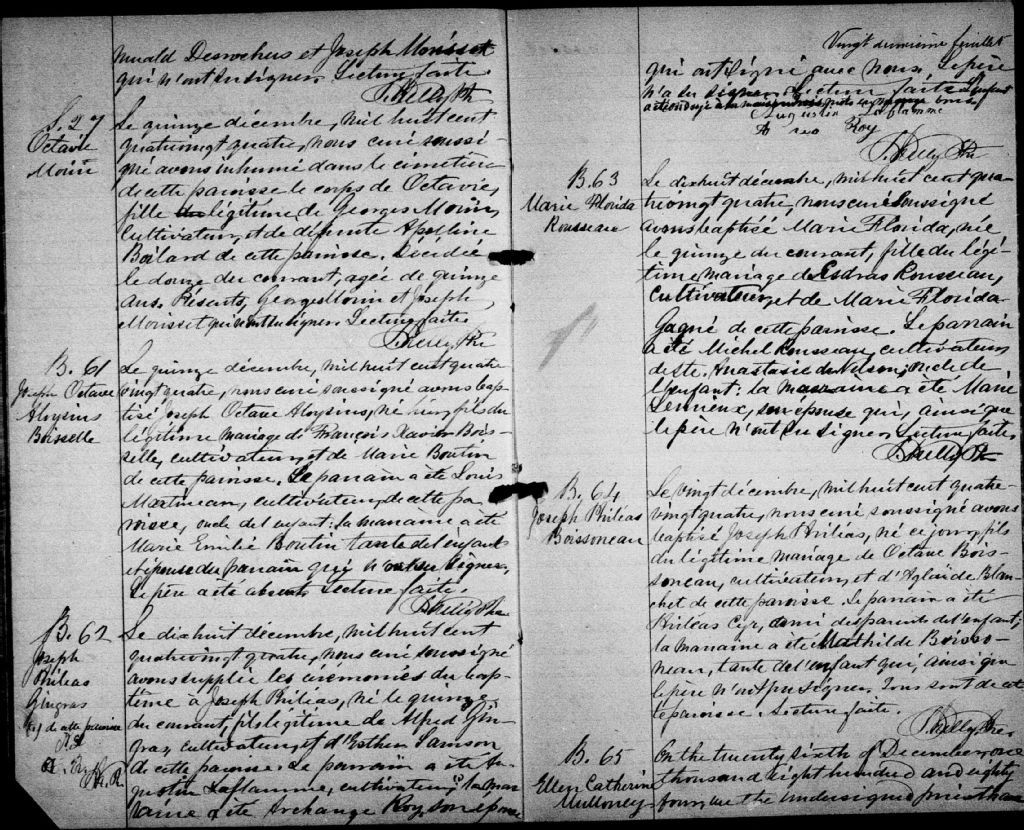 nuald Desrochers et Joseph Morisset
qui n'ont su signer. Lecture faite.
J. Nelly Ptre
S. 27
Octavie
Morin
Le quinze décembre, mil huit cent
quatrevingt quatre, nous curé soussi-
gné avons inhumé dans le cimetière
de cette paroisse le corps de Octavie,
fille légitime de Georges Morin,
cultivateur, et de défunte Apolline
Boilard de cette paroisse. Décédée
le douze du courant, agée de quinze
ans. Présents, Georges Morin et Joseph
Morisset qui n'ont su signer. Lecture faite.
J. Nelly Ptre
B. 61
Joseph Octave
Aloysius
Boisselle
Le quinze décembre, mil huit cent quatre
vingt quatre, nous curé soussigné avons bap-
tisé Joseph Octave Aloysius, né hier, fils du
légitime mariage de François Xavier Bois-
selle, cultivateur, et de Marie Boutin
de cette paroisse. Le parrain a été Louis
Martineau, cultivateur, de cette pa-
roisse, oncle de l'enfant: la marraine a été
Marie Emilie Boutin tante de l'enfant
et épouse du parrain qui n'ont su signer.
Le père a été absent. Lecture faite.
J. Nelly Ptre
B. 62
Joseph
Philéas
Gingras
de cette paroisse
Le dixhuit décembre, mil huit cent
quatrevingt quatre, nous curé soussigné
avons supplée les cérémonies du bap-
tême à Joseph Philéas, né le quinze
du courant, fils légitime de Alfred Gin-
gras, cultivateur, et d'Esther Samson
de cette paroisse. Le parrain a été Au-
gustin Laflamme, cultivateur; la mar-
raine a été Archange Roy, son épouse
Vingt deuxième feuillet
qui ont signé avec nous. Le père
n'a su signer. Lecture faite. L'enfant
Augustin Laflamme
Roy
J. Nelly Ptre
B. 63
Marie Florida
Rousseau
Le dixhuit décembre, mil huit cent qua-
trevingt quatre, nous curé soussigné
avons baptisé Marie Florida, née
le quinze du courant, fille du légi-
time mariage de Esdras Rousseau,
cultivateur, et de Marie Florida
Gagné de cette paroisse. Le parrain
a été Michel Rousseau, cultivateur,
de Ste. Anastasie de Nelson, oncle de
l'enfant: la marraine a été Marie
Lemieux, son épouse qui, ainsi que
le père n'ont su signer. Lecture faite.
J. Nelly Ptre
B. 64
Joseph Philéas
Boissoneau
Le vingt décembre, mil huit cent quatre-
vingt quatre, nous curé soussigné avons
baptisé Joseph Philéas, né ce jour, fils
du légitime mariage de Octave Bois-
soneau, cultivateur, et d'Aglaïde Blan-
chet de cette paroisse. Le parrain a été
Philéas Cyr, ami des parents de l'enfant;
la marraine a été Mathilde Boisso-
neau, tante de l'enfant qui, ainsi que
le père n'ont pu signer. Tous sont de cet-
te paroisse. Lecture faite.
J. Nelly Ptre
B. 65
Ellen Catherine
Mulloney
On the twenty sixth of December one
thousand eight hundred and eighty
four, we the undersigned priest have